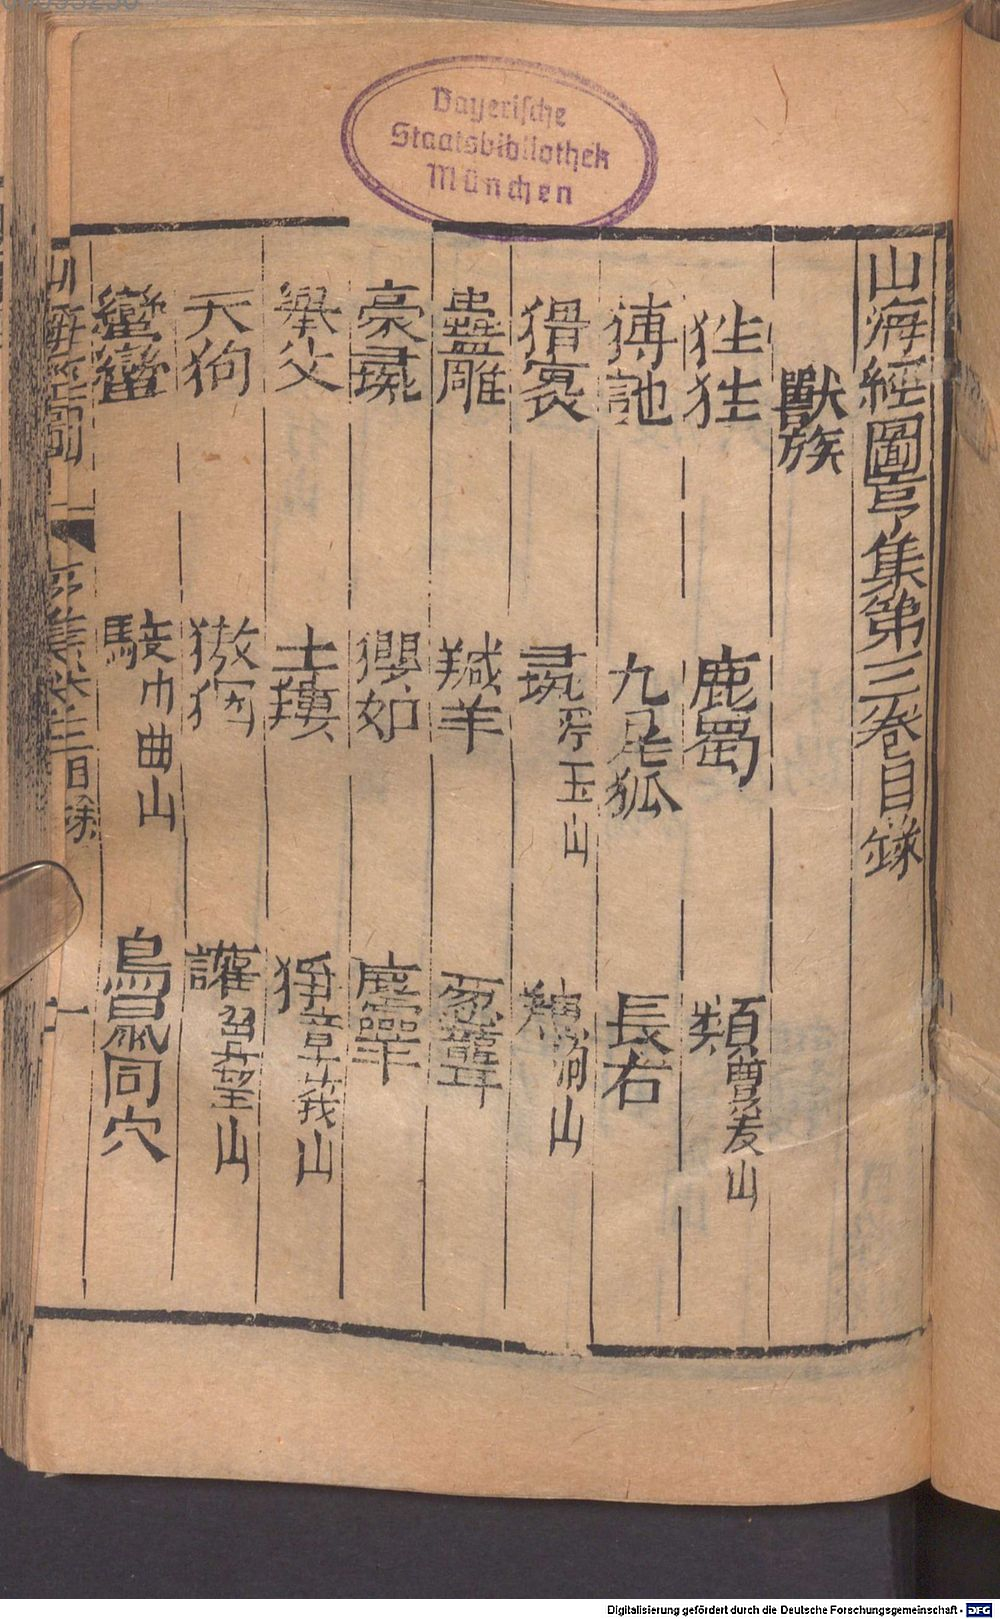 Bayerische
Staatsbibliothek
München
山海經圖亨集第三卷目錄
獸族
狌狌 鹿蜀 類亶爰山
猼訑 九尾狐 長右
猾褢 彘浮玉山 山
蠱雕 羬羊 葱聾
豪彘 玃如 麢羊
舉父 土螻 猙章莪山
天狗 讙翼望山
蠻蠻 山 鳥鼠同穴
Digitalisierung gefördert durch die Deutsche Forschungsgemeinschaft - DFG